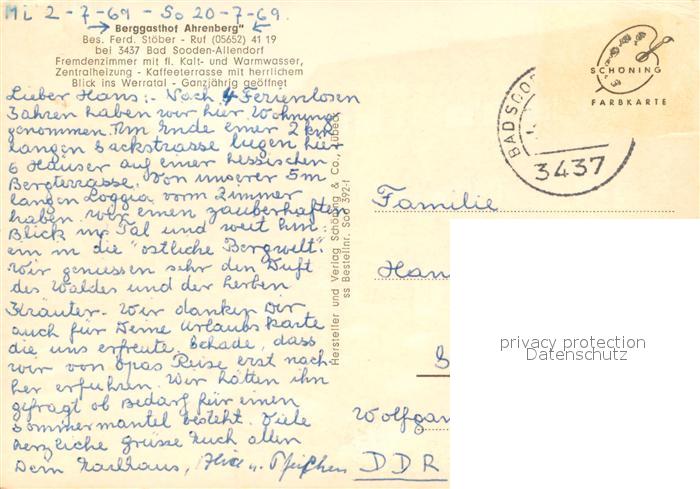 Mi 2-7-69 - So 20-7-69.
Berggasthof Ahrenberg"
Bes. Ferd. Stöber - Ruf (05652) 41 19
bei 3437 Bad Sooden-Allendorf
Fremdenzimmer mit fl. Kalt- und Warmwasser,
Zentralheizung - Kaffeeterrasse mit herrlichem
Blick ins Werratal - Ganzjährig geöffnet
Lieber Hans:- Nach 4 Ferienlosen
Jahren haben wir hier Wohnung
genommen. Am Ende einer 2 km
langen Sackstrasse liegen hier
6 Häuser auf einer hessischen
Bergterrasse. Von unserer 5m
langen Loggia vorm Zimmer
haben wir einen zauberhaften
Blick ins Tal und weit hin-
ein in die "östliche Bergwelt".
Wir geniessen sehr den Duft
des Waldes und der herben
Kräuter. Wir danken Dir
auch für Deine Urlaubskarte
die uns erfreute. Schade, dass
wir von Opas Reise erst nach-
her erfuhren. Wir hätten ihn
gefragt ob Bedarf für einen
Sommermantel besteht. Viele
herzliche Grüsse Euch allen
Dein
Hersteller und Verlag Schöning & Co., Lübeck
ss Bestellnr. Soo 392-f
SCHÖNING
FARBKARTE
BAD SOOD
3437
Familie
Han
Wolfgan
DDR
privacy protection
Datenschutz